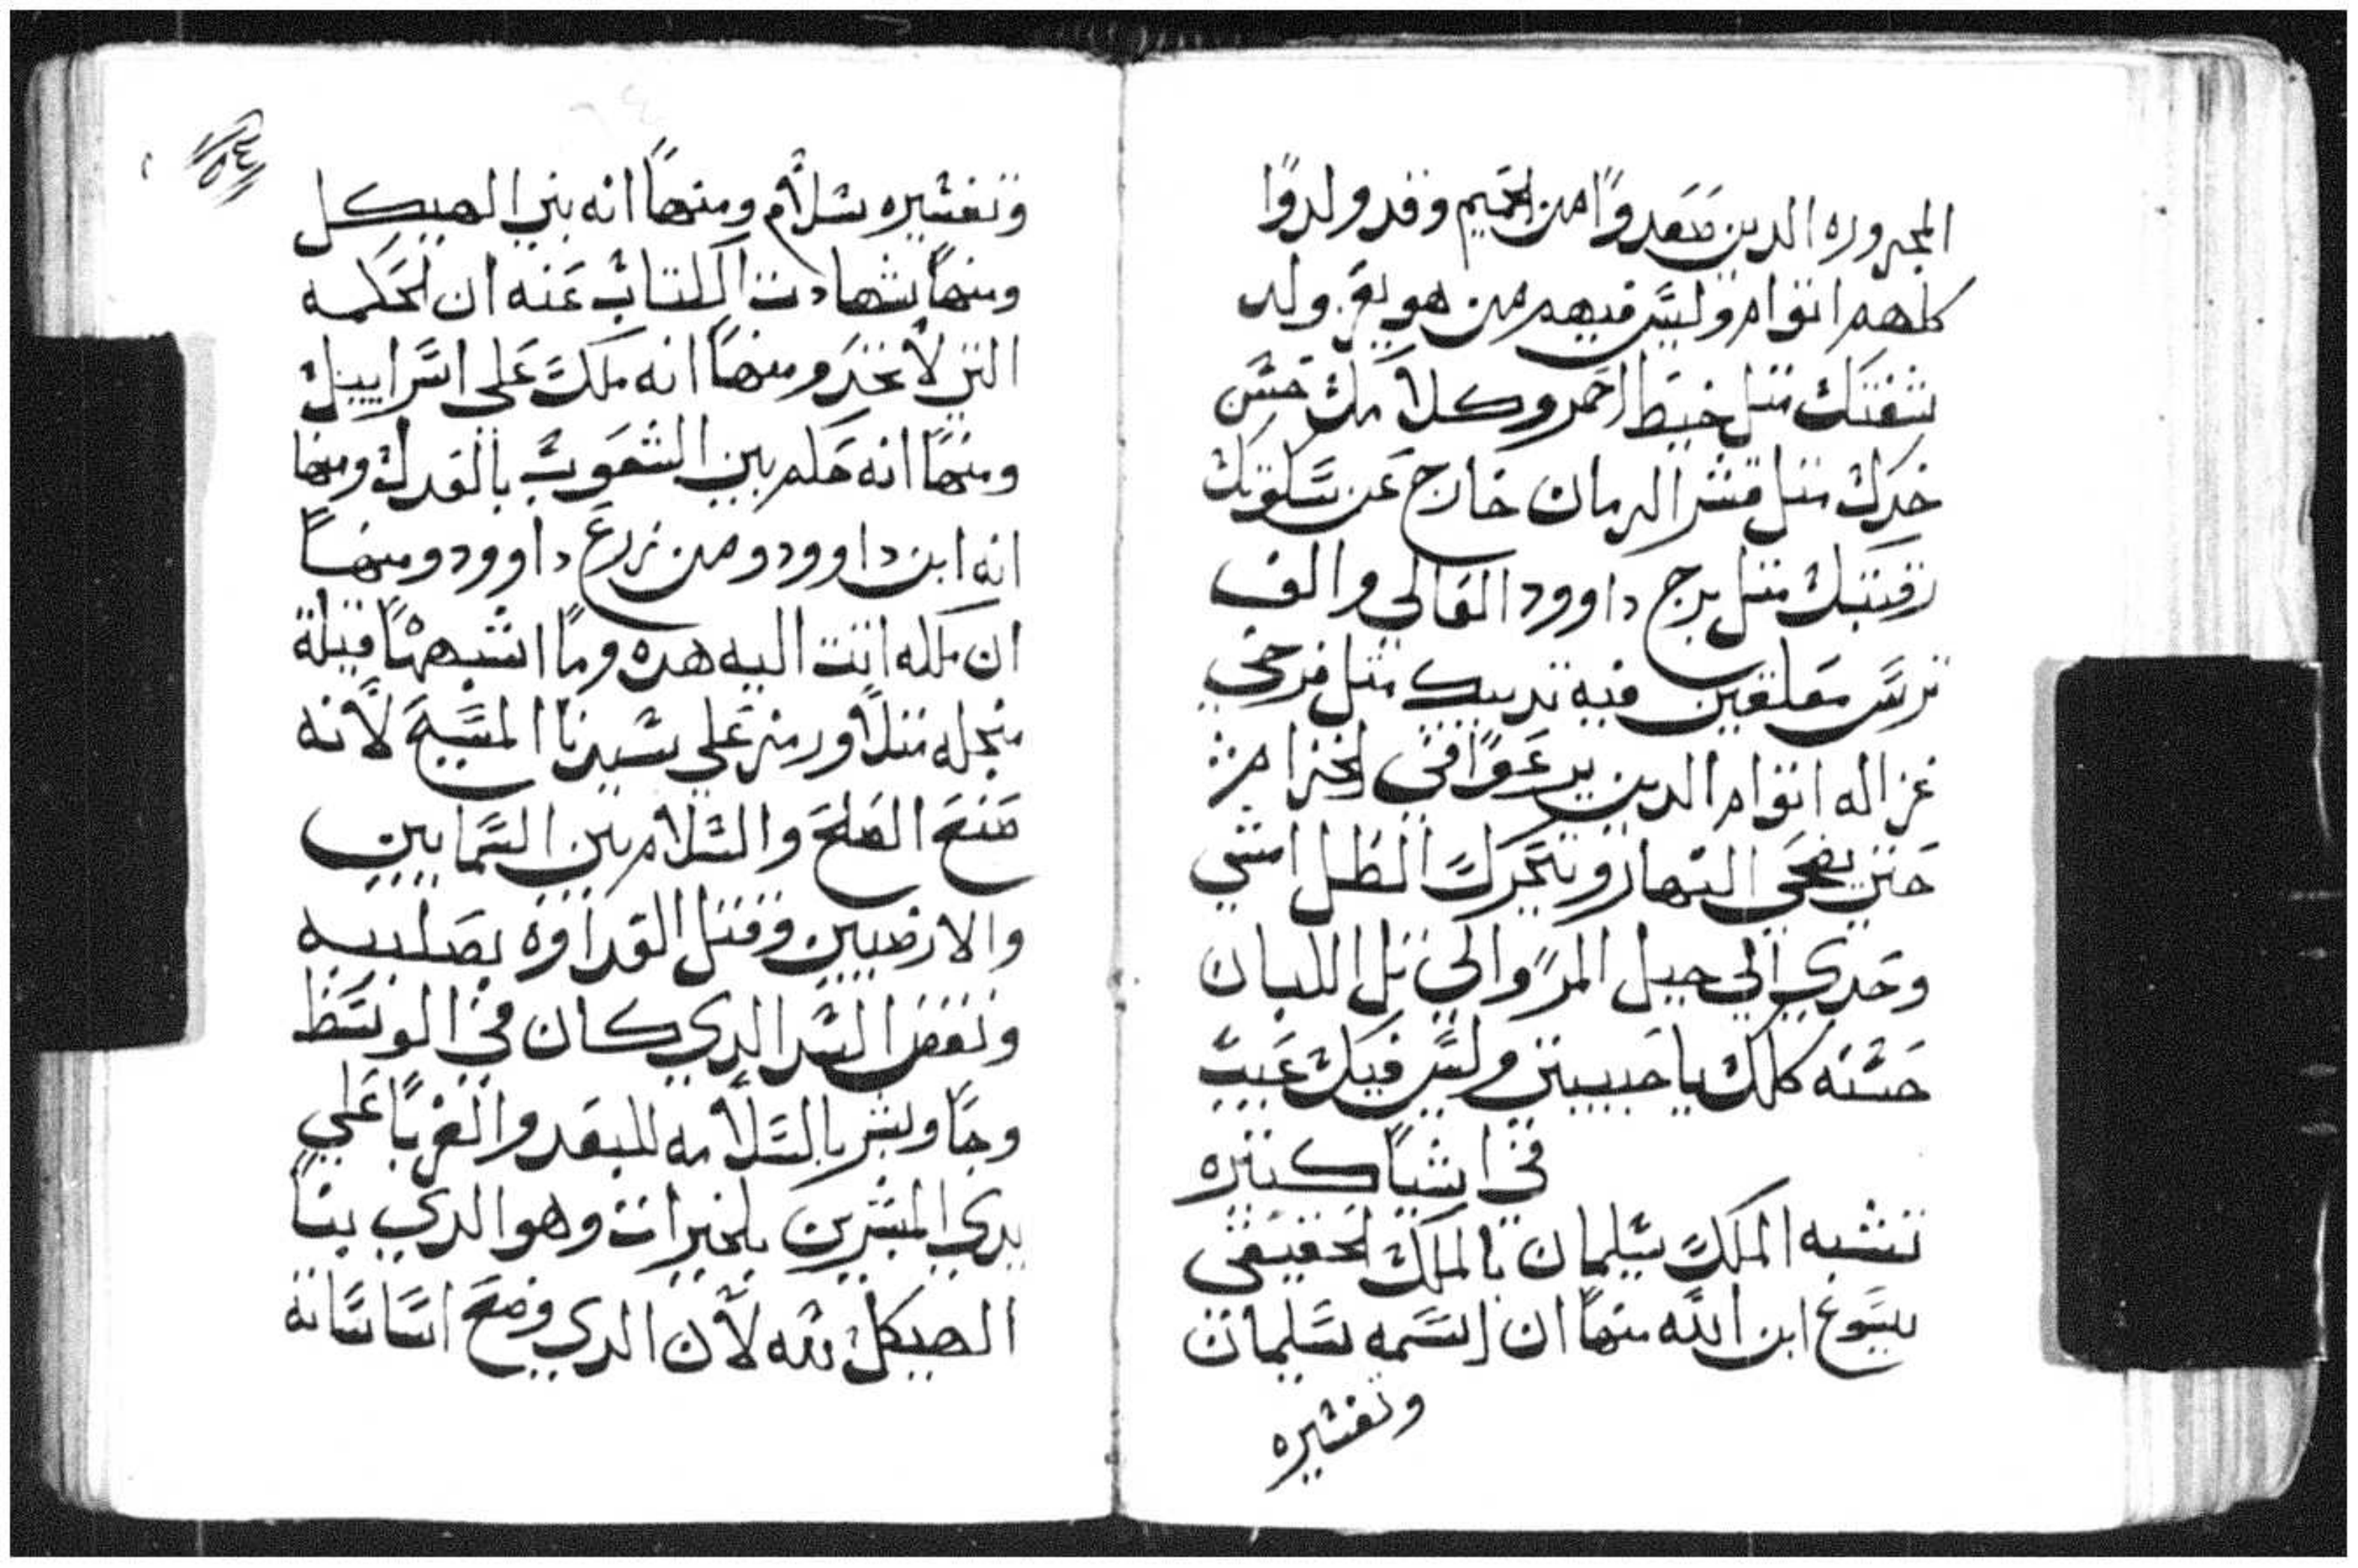 المجروره الدين صَعدوًا من الحميم وقد ولدوًا
كلهم اتوام وليس فيهم من هو بغير ولد
شفتك متل خيط احمر وكلامك حسن
خدك متل قشر الرمان خارج عن سكوتك
رقبتك متل برج داوود العالي والف
ترس معلقين فيه تدييك متل فرخي
غزاله اتوام الدين يرعوًا في الخزام
حتي يضحي النهار ويتحرك الظل امشي
وحدي الي جبل المرّ والي تل اللبان
حسنه كلك يا حبيبتي وليس فيك عيب
في اشيا كتيره
تشبه الملك سليمان بالملك الحقيقي
يسوع ابن الله منها ان اسمه سليمان
وتفسيره
٥٤
وتفسيره سلام ومنها انه بني الهيكل
ومنها شهادت الكتاب عنه ان لحكمه
التي لا تحد ومنها انه ملك علي اسراييل
ومنها انه حكم بين الشعوب بالعدل ومنها
انه ابن داوود ومن زرع داوود ومنها
ان ملكه اتت اليه هده وما اشبهها قيلة
منجله متلاً ورمز علي سيدنا المسيح لانه
صنع الصلح والسلام بين السماييين
والارضيين وقتل العداوه بصليبه
ونقض السد الدي كان في الوسط
وجا وبشر بالسلامه للبعد والغربا علي
يدي المبشرين بلخيرات وهو الدي بنا
الهيكل لله لان الدي وضع اساساته